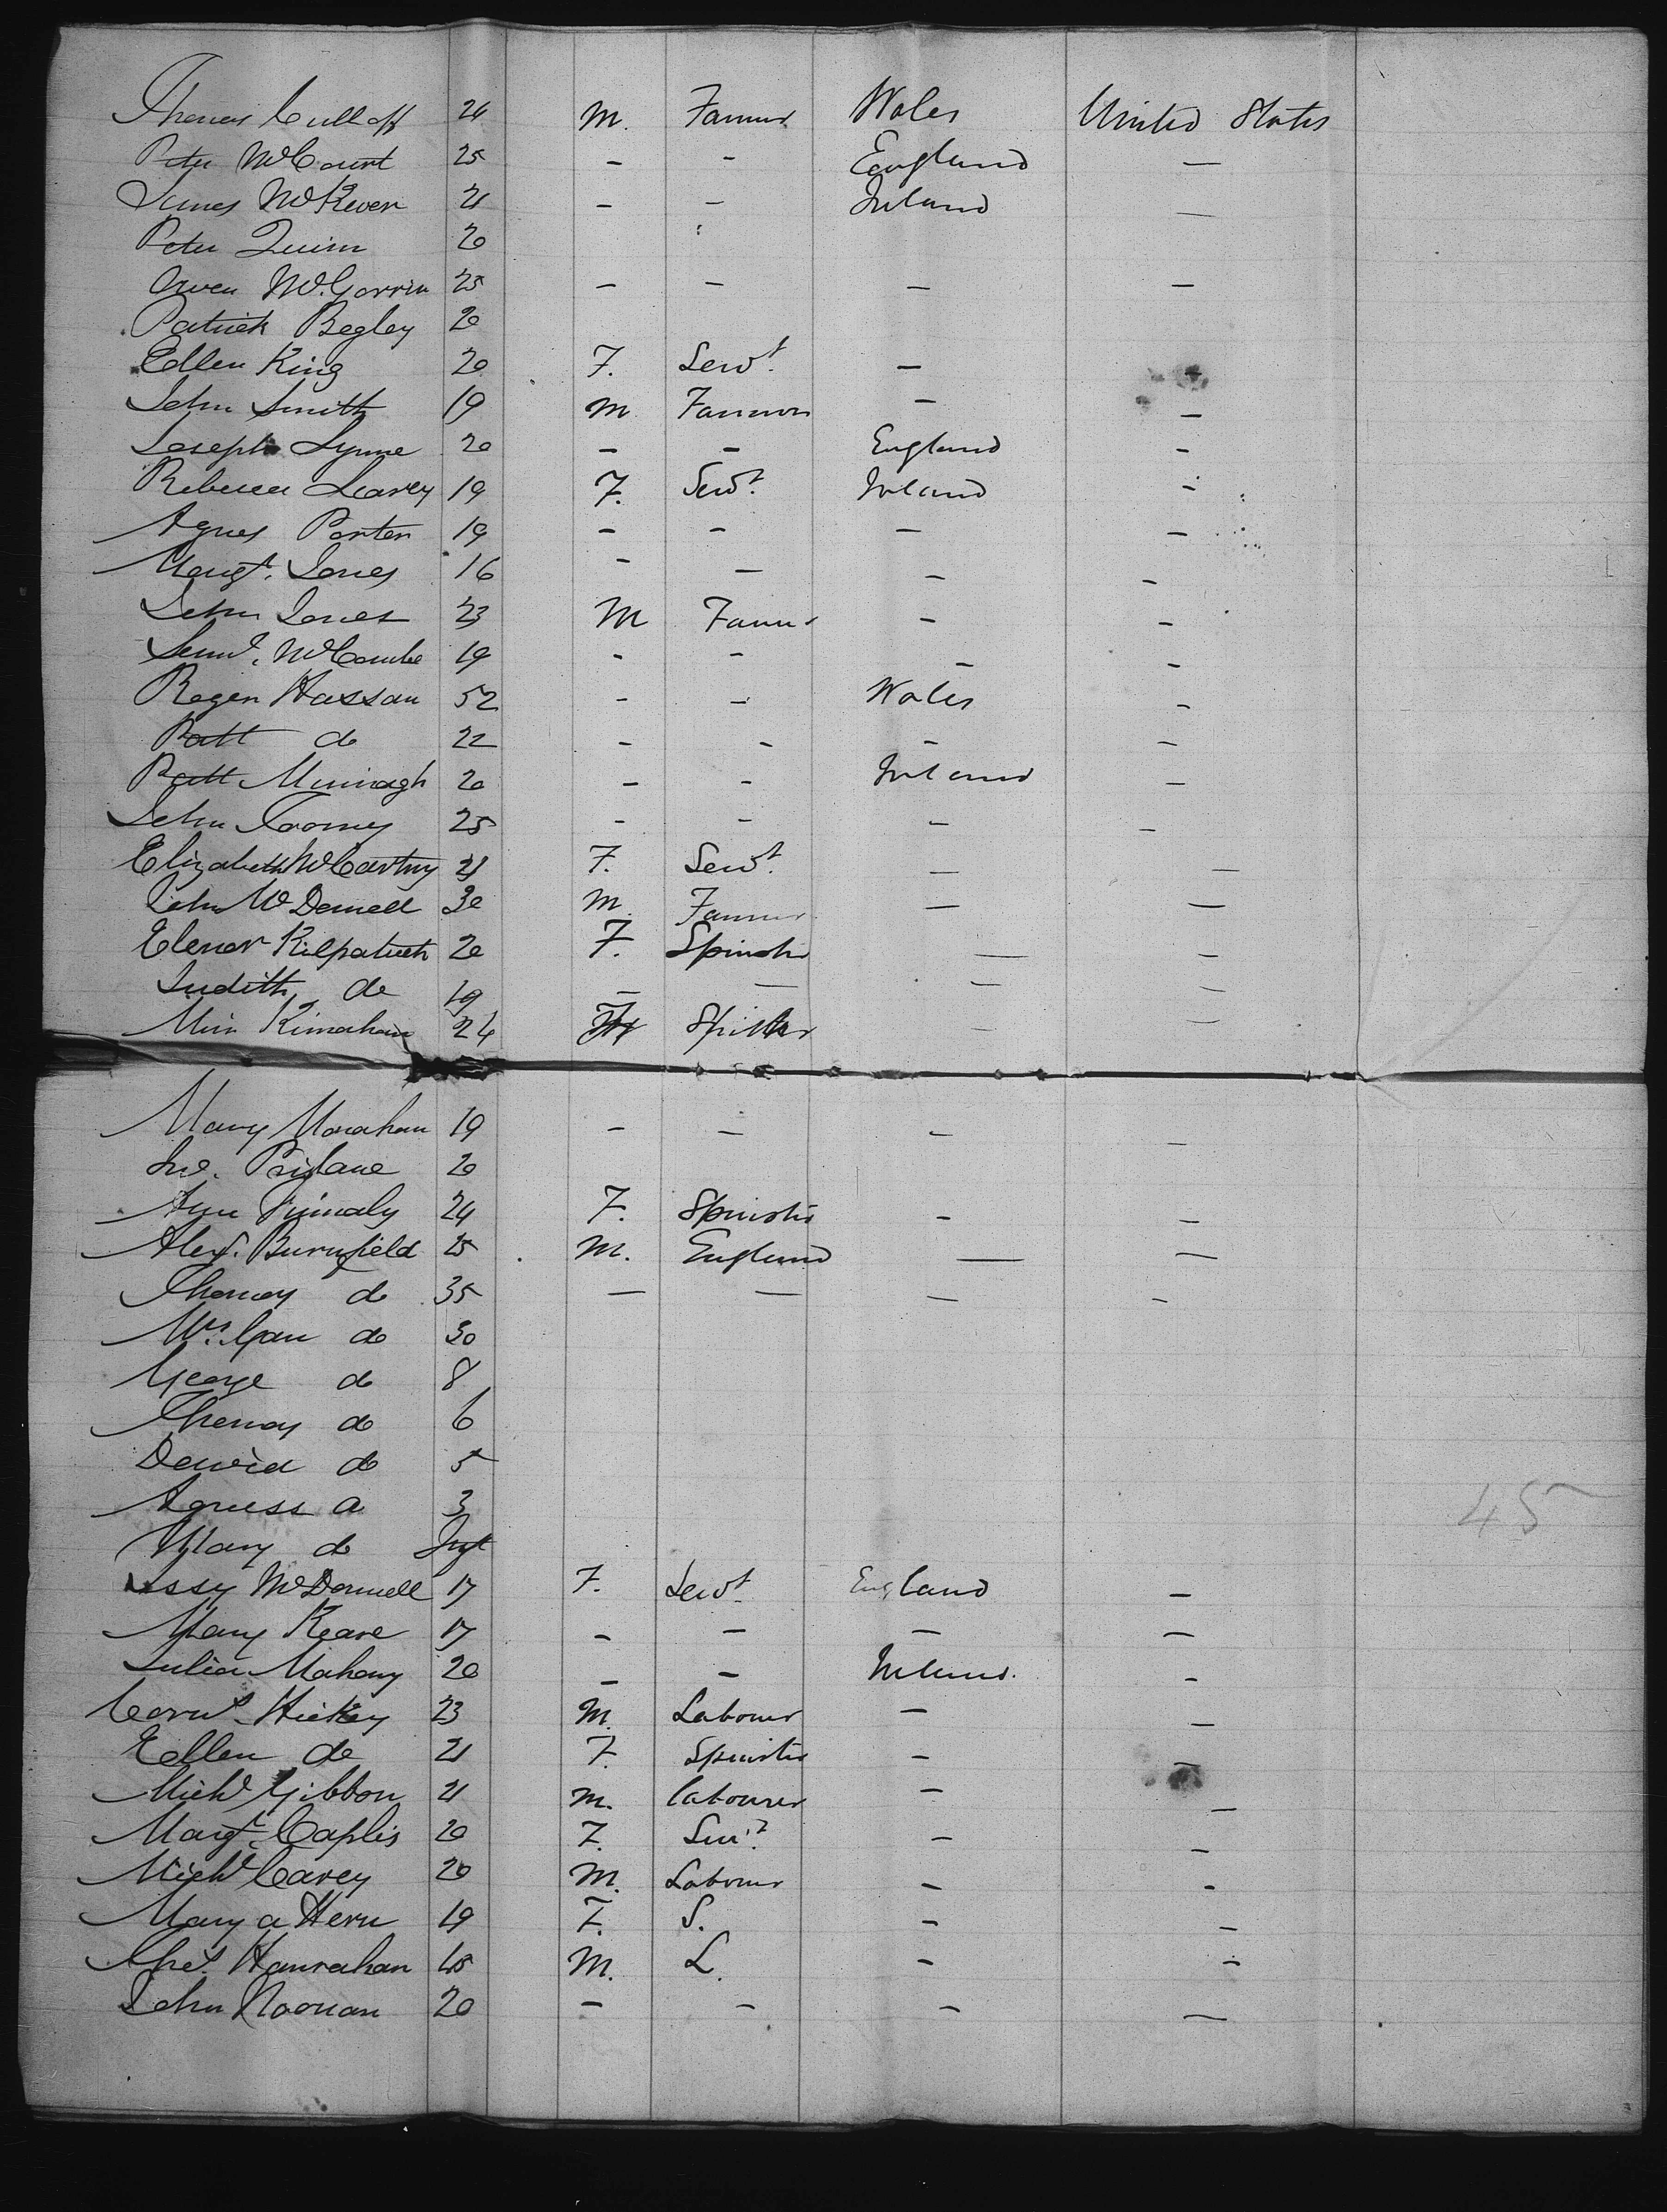 Thomas 24 M. Farmer Wales United States
Peter McCourt 25 – – England –
James McKever 21 – – Ireland –
Peter Quinn 20
Owen McGorrin 25 – – – –
Patrick Begley 20
Ellen King 20 F. Servt. – –
John Smith 19 M Farmer – –
Joseph Lynne 20 – – England –
Rebecca Leavey 19 F. Servt. Ireland –
Agnes Porter 19 – – – –
Margt. Jones 16 – – – –
John Jones 23 M Farmer – –
Saml. McCombe 19 – – – –
Roger Hassan 52 – – Wales –
Patt do 22 – – – –
Patt Murragh 20 – – Ireland –
John Toomey 25 – – – –
Elizabeth McCartny 21 F. Servt. – –
John McDonnell 30 M Farmer – –
Elenor Kilpatrick 20 F. Spinster – –
Judith do 19 – – – –
Kinnahan 24 – –
Mary Monahan 19 – – – –
20
Ann 24 F. Spinster – –
Alexr. Burnfield 25 M. England – –
Thomas do 35 – – – –
Mrs. do 30
George do 8
Thomas do 6
David do 5
Agness do 3
Mary do Inft
Issy McDonnell 17 F. Servt England –
Mary Keare 17 – – – –
Julia Mahony 20 – – Ireland. –
Cornl. Hickey 23 M. Labourer – –
Ellen do 21 F. Spinster – –
Michl Gibbon 21 M. Labourer – –
Margt. Caplis 20 F. Servt. – –
Michl Carey 20 M. Labourer – –
Mary a Hern 19 F. S. – –
Hanrahan 45 M. L. – –
John Noonan 20 – – – –
45